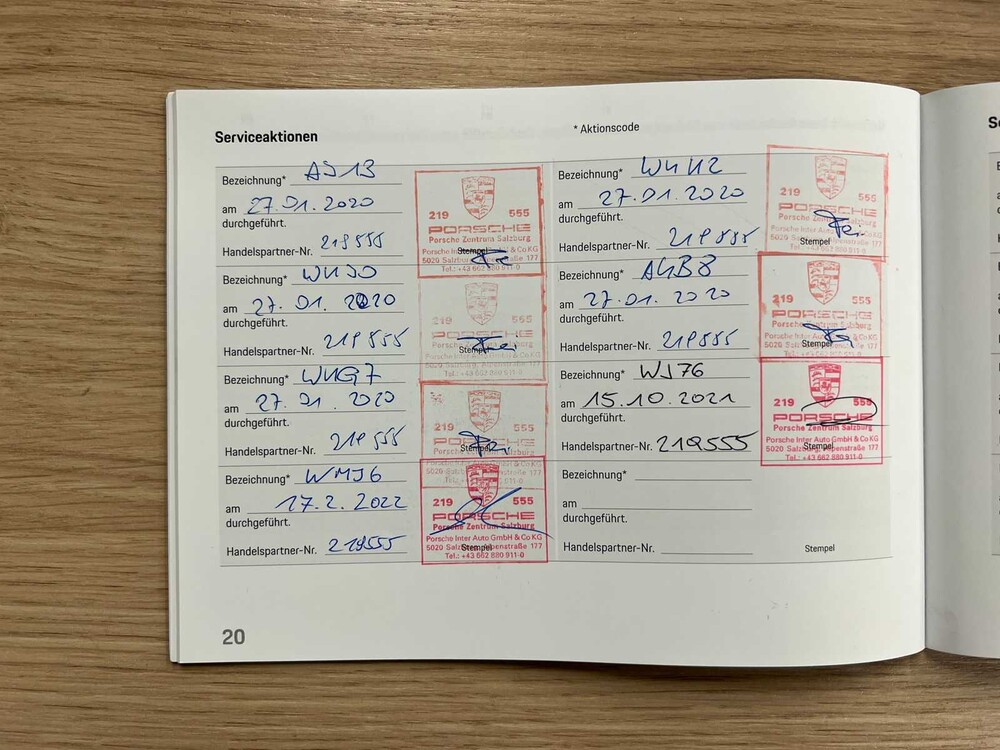 Serviceaktionen
* Aktionscode
Bezeichnung* AJ13
am 27.01.2020
durchgeführt.
Handelspartner-Nr. 219555
219 555
PORSCHE
Porsche Zentrum Salzburg
Porsche Inter Auto GmbH & Co KG
5020 Salzburg, Alpenstraße 177
Tel.: +43 662 880 911-0
Stempel
Bezeichnung* WKK2
am 27.01.2020
durchgeführt.
Handelspartner-Nr. 219555
219 555
PORSCHE
Porsche Zentrum Salzburg
Porsche Inter Auto GmbH & Co KG
5020 Salzburg, Alpenstraße 177
Tel.: +43 662 880 911-0
Stempel
Bezeichnung*
am 27.01.2020
durchgeführt.
Handelspartner-Nr. 219555
219 555
PORSCHE
Porsche Zentrum Salzburg
Porsche Inter Auto GmbH & Co KG
5020 Salzburg, Alpenstraße 177
Tel.: +43 662 880 911-0
Stempel
Bezeichnung* AKB8
am 27.01.2020
durchgeführt.
Handelspartner-Nr. 219555
219 555
PORSCHE
Porsche Zentrum Salzburg
Porsche Inter Auto GmbH & Co KG
5020 Salzburg, Alpenstraße 177
Tel.: +43 662 880 911-0
Stempel
Bezeichnung* WKG7
am 27.01.2020
durchgeführt.
Handelspartner-Nr. 219555
219 555
PORSCHE
Porsche Zentrum Salzburg
Porsche Inter Auto GmbH & Co KG
5020 Salzburg, Alpenstraße 177
Stempel
Bezeichnung* WJ76
am 15.10.2021
durchgeführt.
Handelspartner-Nr. 219555
219 555
PORSCHE
Porsche Zentrum Salzburg
Porsche Inter Auto GmbH & Co KG
5020 Salzburg, Alpenstraße 177
Tel.: +43 662 880 911-0
Stempel
Bezeichnung* WMJ6
am 17.2.2022
durchgeführt.
Handelspartner-Nr. 219555
219 555
PORSCHE
Porsche Zentrum Salzburg
Porsche Inter Auto GmbH & Co KG
5020 Salzburg, Alpenstraße 177
Tel.: +43 662 880 911-0
Stempel
Bezeichnung*
am
durchgeführt.
Handelspartner-Nr.
Stempel
20